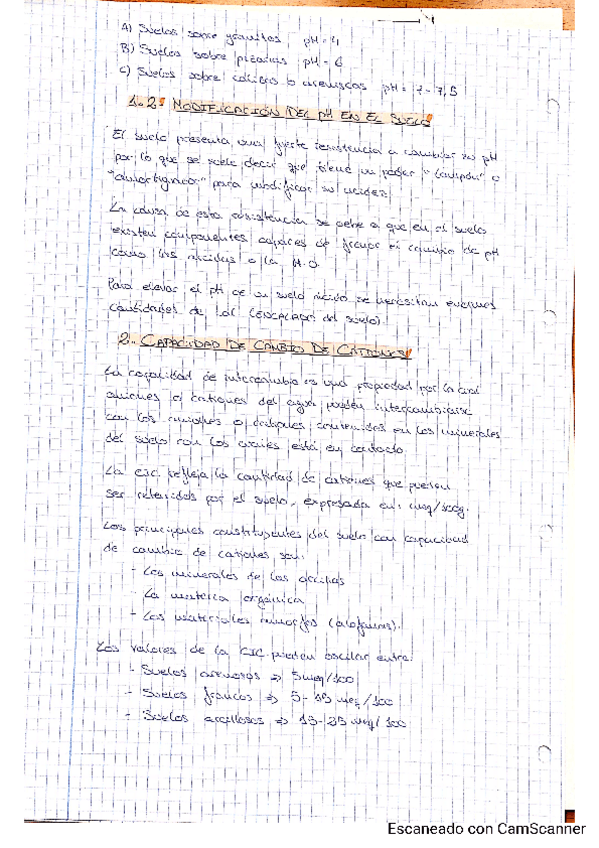 A) Suelos sobre granitos pH = 4
B) Suelos sobre pizarras pH = 6
C) Suelos sobre calizas o areniscas pH = 7 - 7,5
1.2. MODIFICACIÓN DEL pH EN EL SUELO
El suelo presenta una fuerte resistencia a cambiar su pH
por lo que se suele decir que tiene un poder "tampón" o
"amortiguador" para modificar su acidez.
La causa de esta resistencia se debe a que en el suelo
existen componentes capaces de frenar el cambio de pH
como las arcillas o la M.O.
Para elevar el pH de un suelo ácido se necesitan enormes
cantidades de cal (encalado del suelo).
2. CAPACIDAD DE CAMBIO DE CATIONES
La capacidad de intercambio es una propiedad por la cual
aniones o cationes del agua pueden intercambiarse
con los aniones o cationes contenidos en los minerales
del suelo con los cuales está en contacto
La CIC refleja la cantidad de cationes que pueden
ser retenidos por el suelo, expresada en: meq/100g.
Los principales constituyentes del suelo con capacidad
de cambio de cationes son:
- Los minerales de las arcillas
- La materia orgánica
- Los materiales amorfos (alofanas).
Los valores de la CIC pueden oscilar entre:
- Suelos arenosos => 5 meq/100
- Suelos francos => 5-15 meq/100
- Suelos arcillosos => 15-25 meq/100
Escaneado con CamScanner